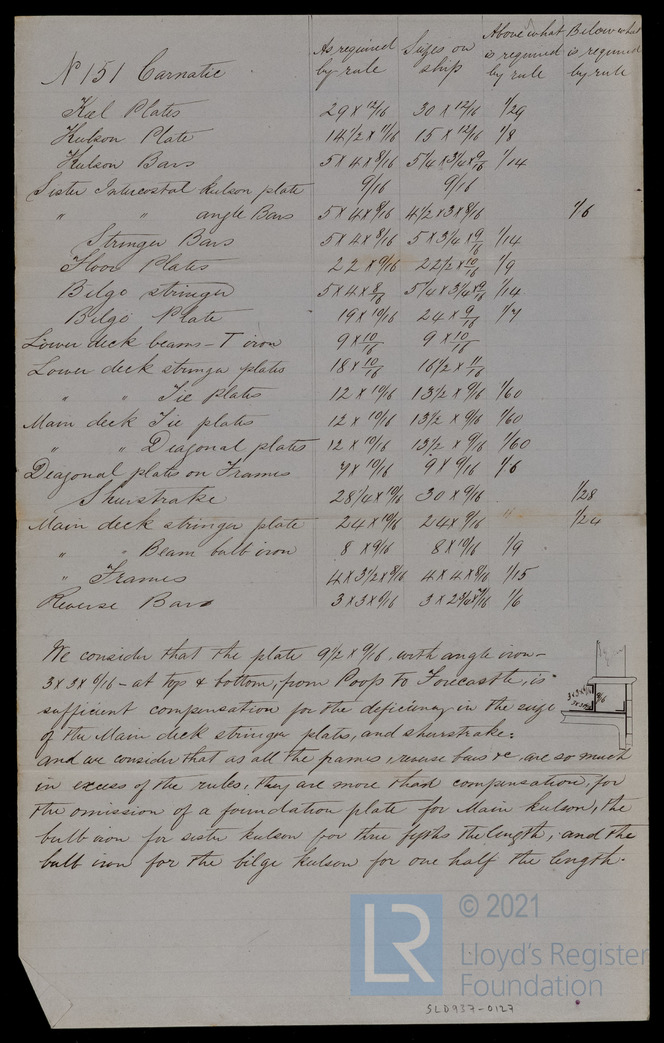 As required by rule | Sizes on ship | Above what is required by rule | Below what is required by rule
No 151 Carnatic
Keel Plates 29 x 12/16 30 x 12/16 1/29
Kulson Plate 14 1/2 x 11/16 15 x 12/16 1/8
Kulson Bars 5 x 4 x 8/16 5 1/4 x 3 3/4 x 9/16 1/14
Sister Intercostal kulson plate 9/16 9/16
" " angle Bars 5 x 4 x 8/16 4 1/2 x 3 x 8/16 1/6
Stringer Bars 5 x 4 x 8/16 5 x 3 3/4 x 9/16 1/14
Floor Plates 22 x 9/16 22 1/2 x 10/16 1/9
Bilge stringer 5 x 4 x 8/16 5 1/4 x 3 3/4 x 9/16 1/14
Bilge Plate 19 x 10/16 24 x 9/16 1/7
Lower deck beams - T iron 9 x 10/16 9 x 10/16
Lower deck stringer plates 18 x 10/16 16 1/2 x 11/16
" " Tie Plates 12 x 10/16 13 1/2 x 9/16 1/60
Main deck Tie plates 12 x 10/16 13 1/2 x 9/16 1/60
" " Deagonal plates 12 x 10/16 13 1/2 x 9/16 1/60
Deagonal plates on Frames 7 x 10/16 9 x 9/16 1/6
Sheerstrake 28 1/4 x 10/16 30 x 9/16 1/28
Main deck stringer plate 24 x 10/16 24 x 9/16 " 1/24
" " Beam bulb iron 8 x 9/16 8 x 10/16 1/9
" Frames 4 x 3 1/2 x 8/16 4 x 4 x 8/16 1/15
Reverse Bars 3 x 3 x 6/16 3 x 1/6
We consider that the plate 9 1/2 x 9/16, with angle iron -
3 x 3 x 6/16 - at top & bottom, from Poop to Forecastle, is
sufficient compensation for the deficiency in the size
of the Main deck stringer plate, and sheerstrake:
and we consider that as all the frames, reverse bars &c, are so much
in excess of the rules, they are more than compensation, for
the omission of a foundation plate for Main kulson, the
bulb iron for sister kulson for three fifths the length, and the
bulb iron for the bilge kulson for one half the length.
LR © 2021
Lloyd's Register
Foundation
SLD937-0127